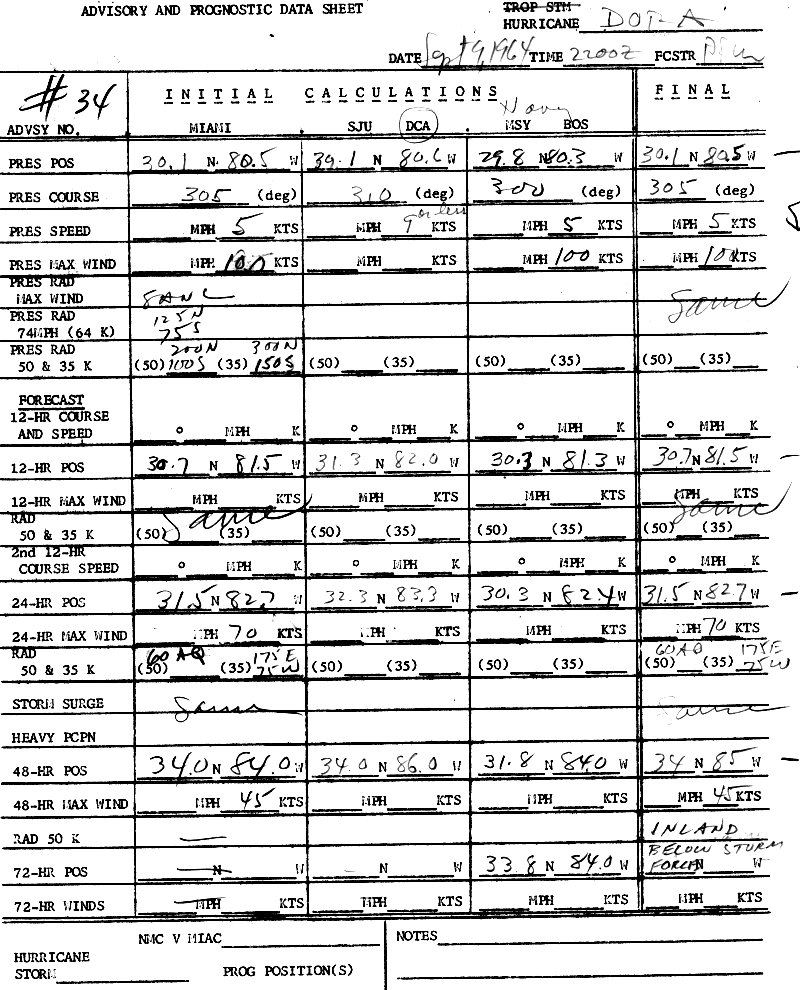 ADVISORY AND PROGNOSTIC DATA SHEET
TROP STM
HURRICANE DORA
DATE Sept 9, 1964 TIME 2200Z FCSTR
# 34
INITIAL CALCULATIONS FINAL
Navy
ADVSY NO. MIAMI SJU DCA MSY BOS
PRES POS 30.1 N 80.5 W 30.1 N 80.6 W 29.8 N 80.3 W 30.1 N 80.5 W
PRES COURSE 305 (deg) 310 (deg) 300 (deg) 305 (deg)
PRES SPEED MPH 5 KTS MPH 9 KTS MPH 5 KTS MPH 5 KTS
PRES MAX WIND MPH 100 KTS MPH KTS MPH 100 KTS MPH 100 KTS
PRES RAD
MAX WIND Same
PRES RAD 125N
74MPH (64 K) 75S
PRES RAD 200N 300N
50 & 35 K (50) 100S (35) 150S (50) (35) (50) (35) (50) (35)
FORECAST
12-HR COURSE
AND SPEED ° MPH K ° MPH K ° MPH K ° MPH K
12-HR POS 30.7 N 81.5 W 31.3 N 82.0 W 30.3 N 81.3 W 30.7 N 81.5 W
12-HR MAX WIND MPH KTS MPH KTS MPH KTS MPH KTS
RAD Same Same
50 & 35 K (50) (35) (50) (35) (50) (35) (50) (35)
2nd 12-HR
COURSE SPEED ° MPH K ° MPH K ° MPH K ° MPH K
24-HR POS 31.5 N 82.7 W 32.3 N 83.3 W 30.3 N 82.4 W 31.5 N 82.7 W
24-HR MAX WIND MPH 70 KTS MPH KTS MPH KTS MPH 70 KTS
RAD 60 AQ 175E 60 AQ 175E
50 & 35 K (50) (35) 75W (50) (35) (50) (35) (50) (35) 75W
STORM SURGE Same Same
HEAVY PCPN
48-HR POS 34.0 N 84.0 W 34.0 N 86.0 W 31.8 N 84.0 W 34 N 85 W
48-HR MAX WIND MPH 45 KTS MPH KTS MPH KTS MPH 45 KTS
RAD 50 K INLAND
BELOW STORM
72-HR POS N W N W 33.8 N 84.0 W FORCE N W
72-HR WINDS MPH KTS MPH KTS MPH KTS MPH KTS
NMC V MIAC NOTES
HURRICANE
STORM PROG POSITION(S)